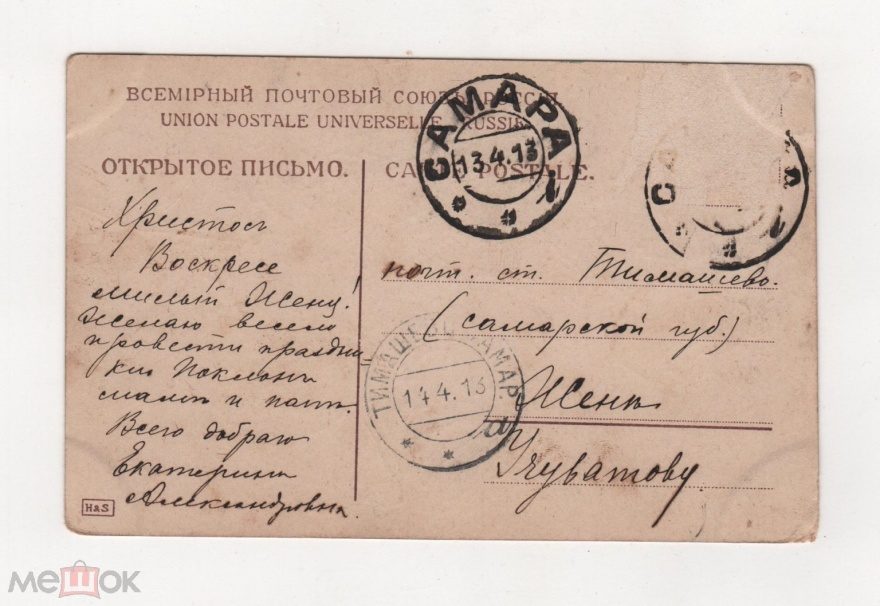 ВСЕМІРНЫЙ ПОЧТОВЫЙ СОЮЗЪ РОССІЯ
UNION POSTALE UNIVERSELLE RUSSIE
ОТКРЫТОЕ ПИСЬМО.
CARTE POSTALE.
САМАРА
13.4.13
Христосъ
Воскресе
милый Женя!
Желаю весело
провести праздни
ки Поклонъ
мамѣ и папѣ.
Всего добраго
Екатерина
Александровна.
почт. ст. Тимашево.
(самарской губ.)
Женѣ
ТИМАШЕВО САМАР.
14.4.13
а
H&S
мешок